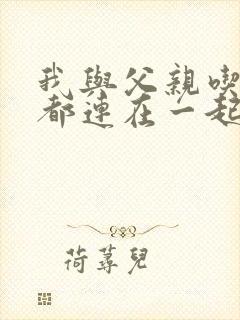 我與父親喫
都連在一起
荷蕁兒